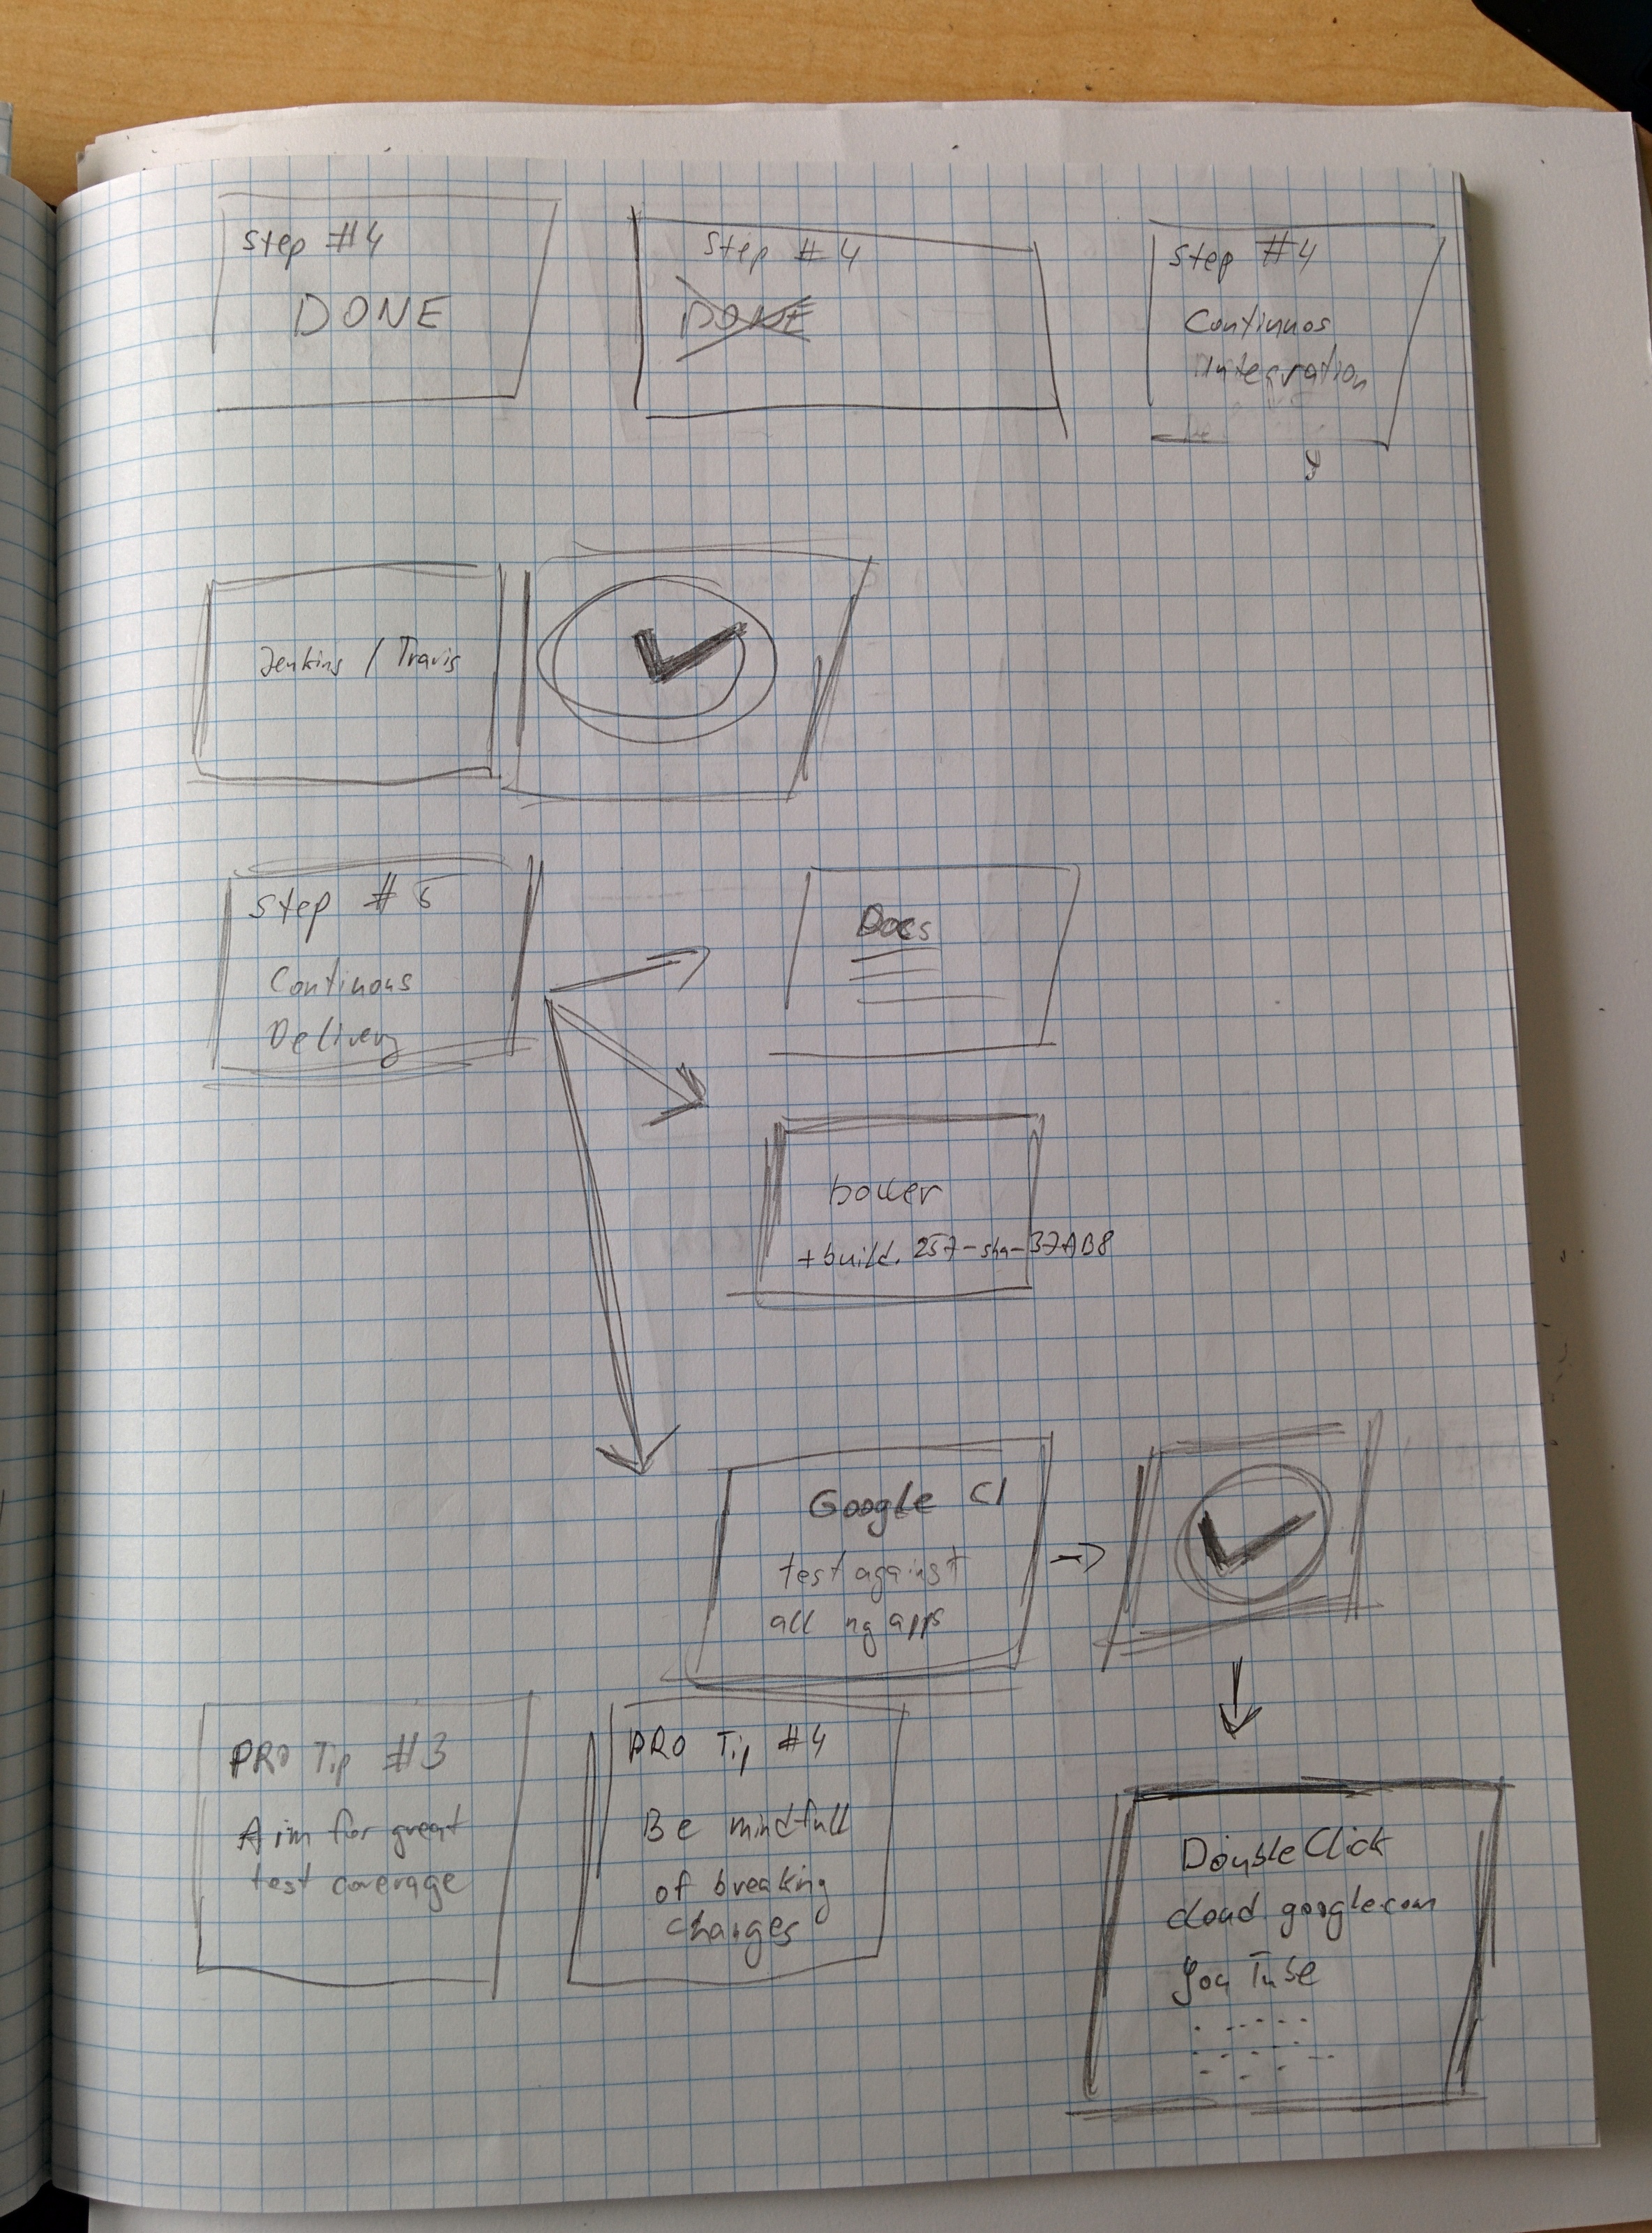 Step #4
DONE
Step #4
DONE
Step #4
Continuos
Integration
Jenkins / Travis
Step #5
Continous
Delivery
Docs
bower
+build.257-sha-37AB8
Google CI
test against
all ng apps
PRO Tip #3
Aim for great
test coverage
PRO Tip #4
Be mindfull
of breaking
changes
DoubleClick
cloud.google.com
YouTube